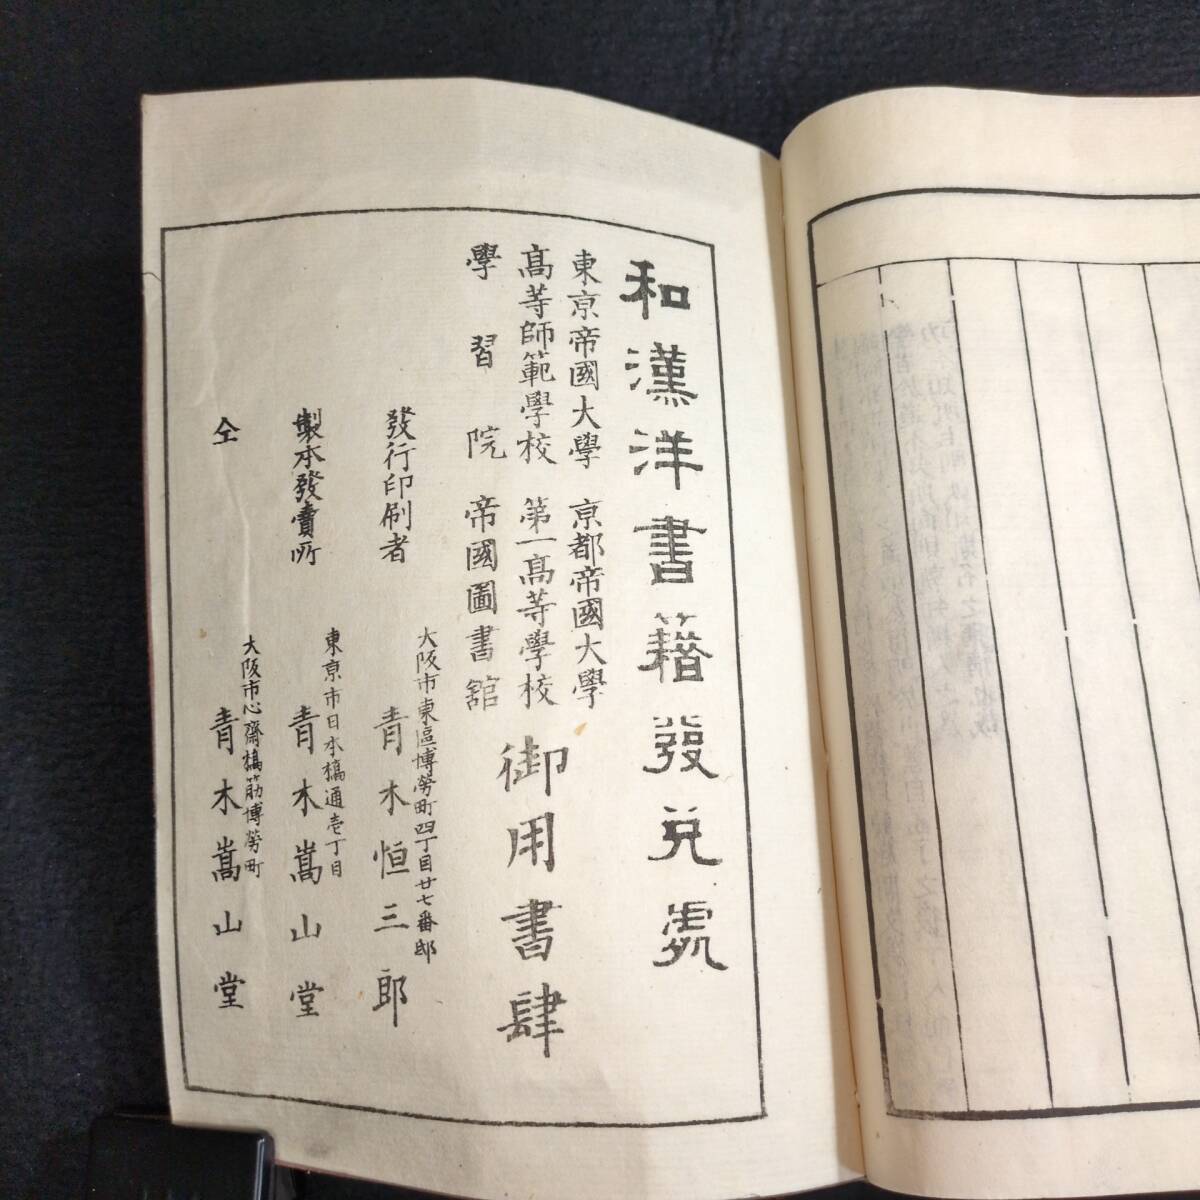 和漢洋書籍發兌處
東京帝國大學　京都帝國大學
高等師範學校　第一高等學校
學習院　帝國圖書舘
御用書肆
發行印刷者
大阪市東區博勞町四丁目廿七番邸
青木恒三郎
製本發賣所
東京市日本橋通壱丁目
青木嵩山堂
仝
大阪市心齋橋筋博勞町
青木嵩山堂